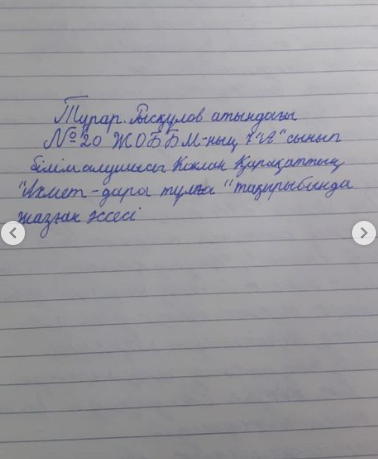 Тұрар. Рысқұлов атындағы
№20 ЖОББМ-ның 7 "А" сынып
білім алушысы Қарақаттың
"Ахмет - дара тұлға" тақырыбында
жазған эссесі